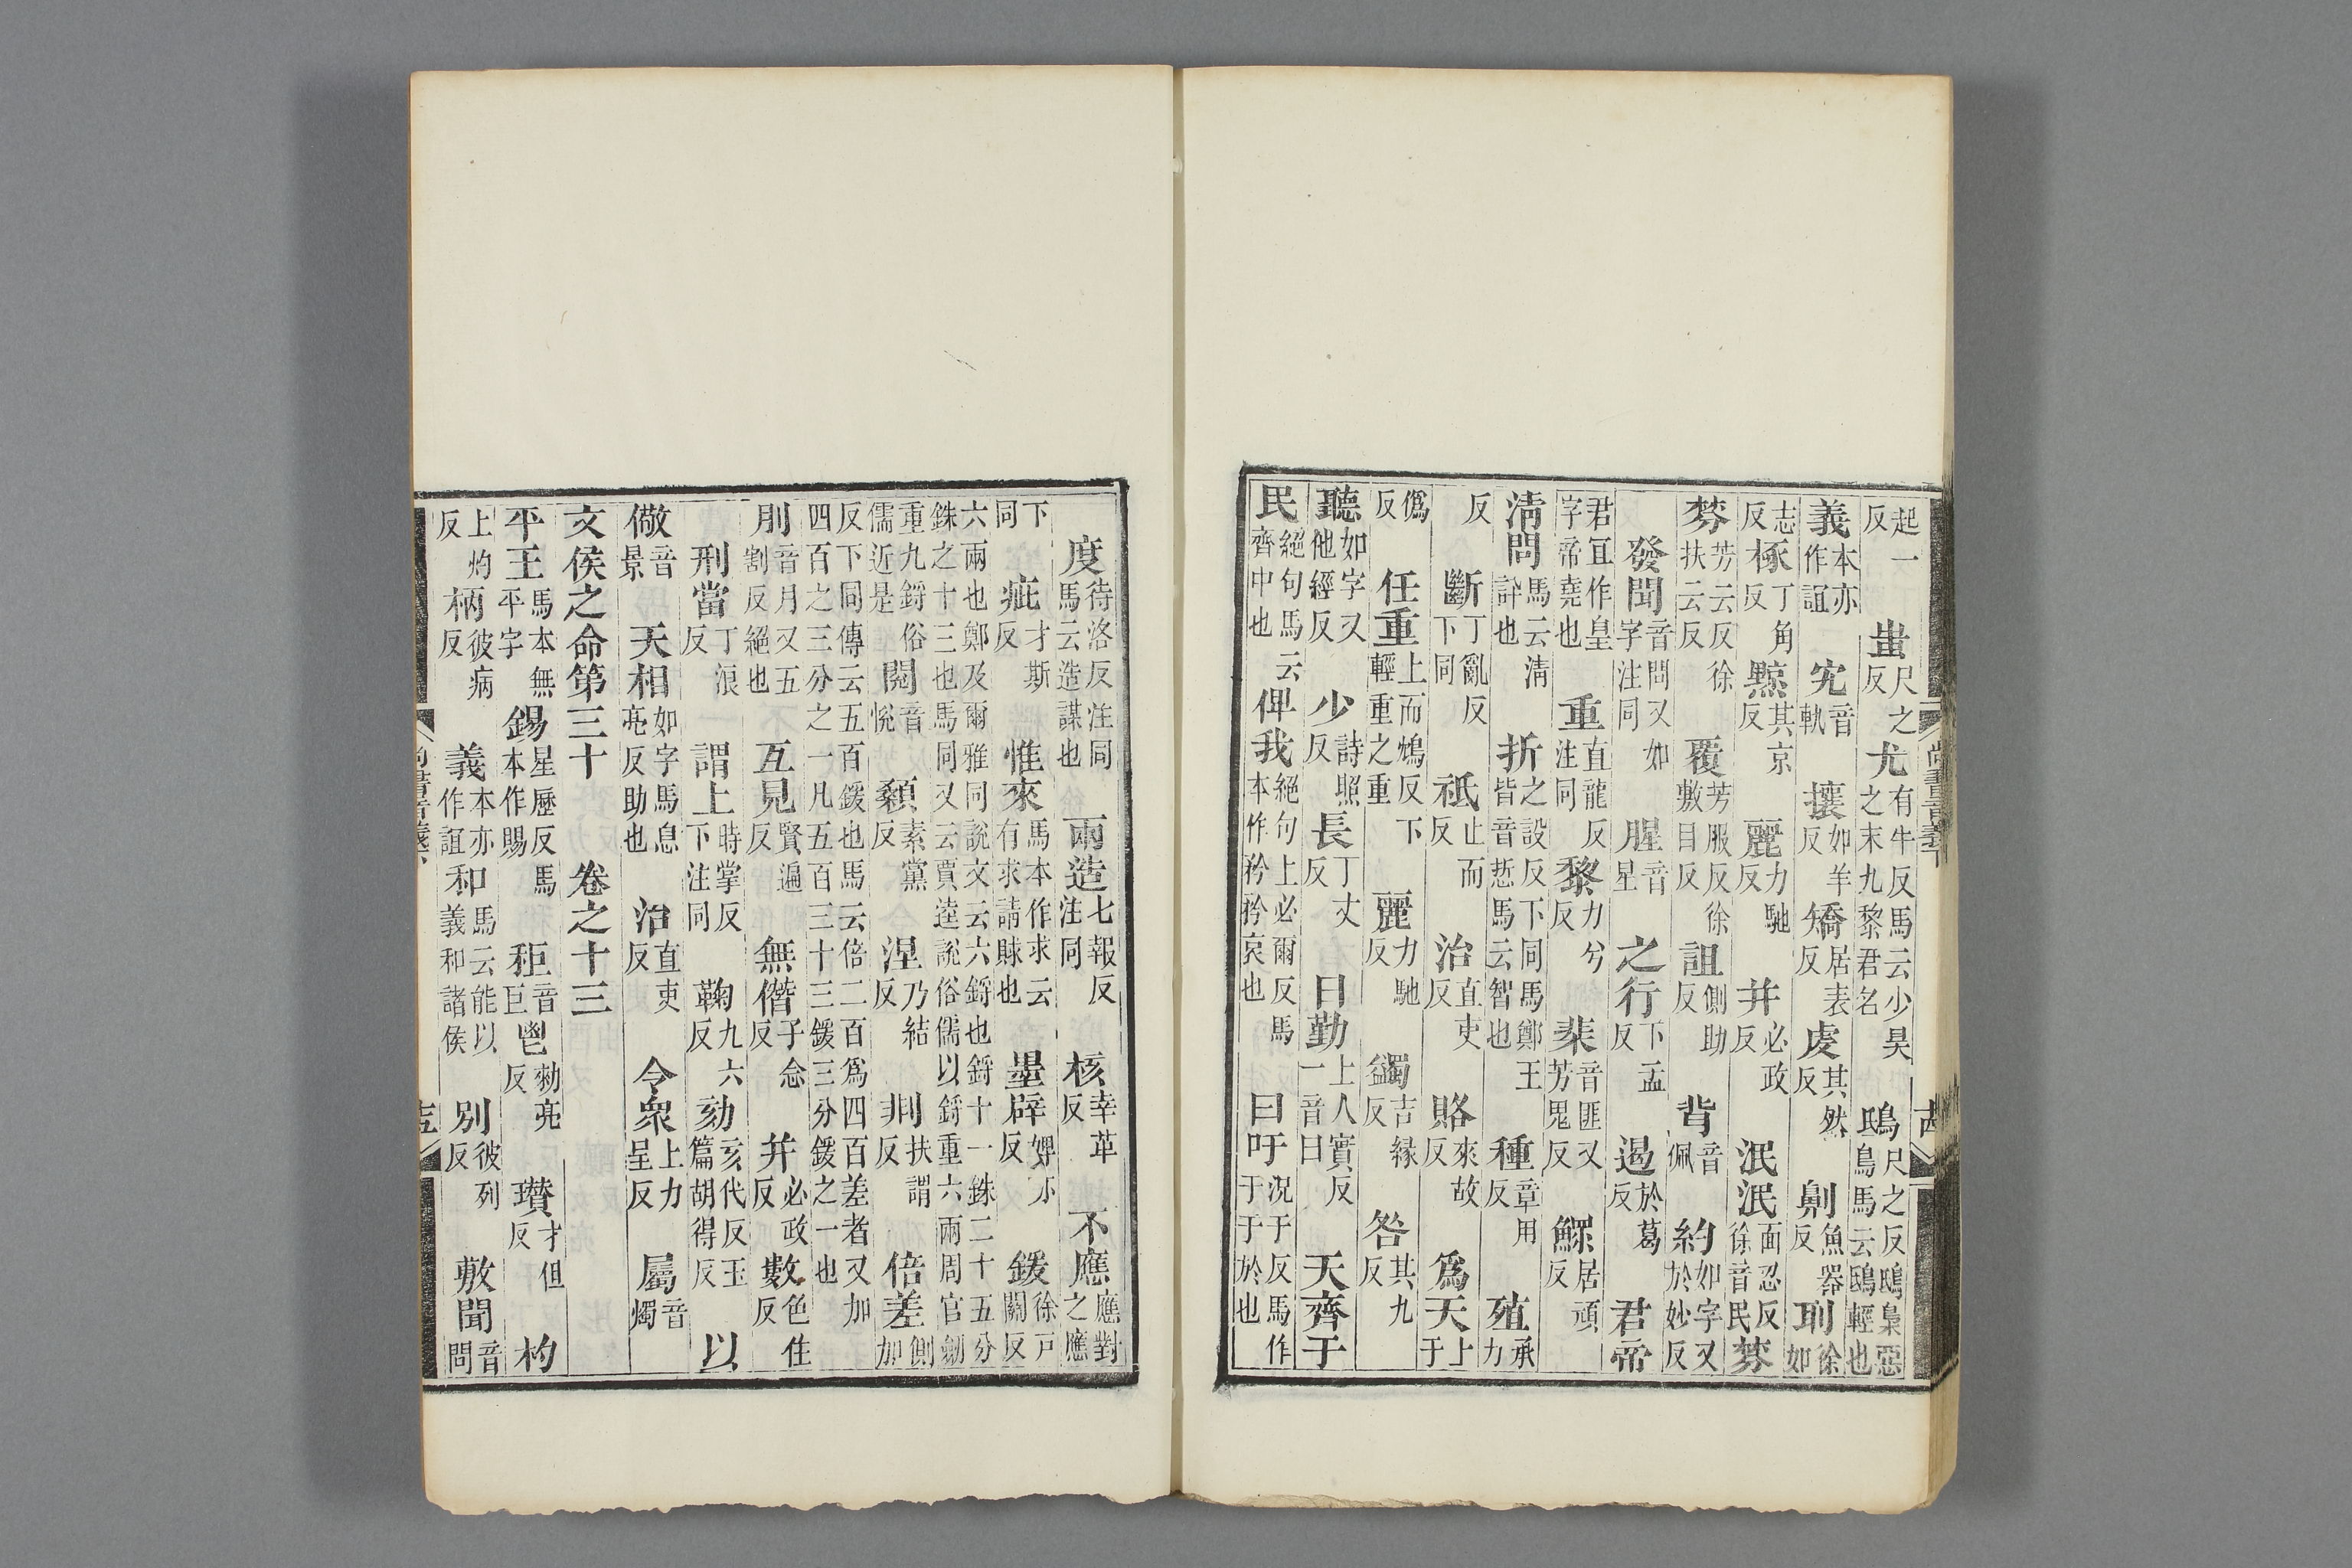 尚書音義下 古
起一反 蚩尺之反 尤有牛反馬云少昊之末九黎君名 鴟尺之反鴟梟惡鳥馬云鴟輕也
義本亦作誼 宄音軌 攘如羊反 矯居表反 虔其然反 劓魚器反 刵徐如
志反 椓丁角反 黥其京反 麗力馳反 并必政反 泯泯面忍反徐音民 棼
棼芳云反徐扶云反 覆芳服反徐敷目反 詛側助反 背音佩 約如字又於妙反
發聞音問又如字注同 腥音星 之行下孟反 遏於葛反 君帝
君宜作皇字帝堯也 重直龍反注同 黎力兮反 棐音匪又芳鬼反 鰥居頑反
清問馬云清訐也 折之設反下同馬鄭王皆音悊馬云智也 種章用反 殖承力
反 斷丁亂反下同 祗止而反 治直吏反 賂來故反 爲天上于
僞反 任重上而鴆反下輕重之重 麗力馳反 蠲吉緣反 咎其九反
聽如字又他經反 少詩照反 長丁丈反 日勤上人實反一音曰 天齊于
民絕句馬云齊中也 俾我絕句上必爾反馬本作矜矜哀也 曰吁況于反馬作于于於也
度待洛反注同馬云造謀也 兩造七報反注同 核幸革反 不應應對之應
下同 疵才斯反 惟來馬本作求云有求請賕也 墨辟婢亦反 鍰徐戸關反
六兩也鄭及爾雅同說文云六鋝也鋝十一銖二十五分銖之十三也馬同又云賈逵說俗儒以鋝重六兩周官劒
重九鋝俗儒近是 閱音悅 顙素黨反 涅乃結反 剕扶謂反 倍差側加
反下同傳云五百鍰也馬云倍二百爲四百差者又加四百之三分之一凡五百三十三鍰三分鍰之一也
刖音月又五割反絕也 互見賢遍反 無僭子念反 并必政反 數色住反
刑當丁浪反 謂上時掌反下注同 鞫九六反 劾亥代反玉篇胡得反 以
儆音景 天相如字馬息亮反助也 治直吏反 令衆上力呈反 屬音燭
文侯之命第三十 卷之十三
平王馬本無平字 錫星歷反馬本作賜 秬音巨 鬯勑亮反 瓚才但反 杓
上灼反 柄彼病反 義本亦作誼 和馬云能以義和諸侯 別彼列反 敷聞音問
尚書音義下